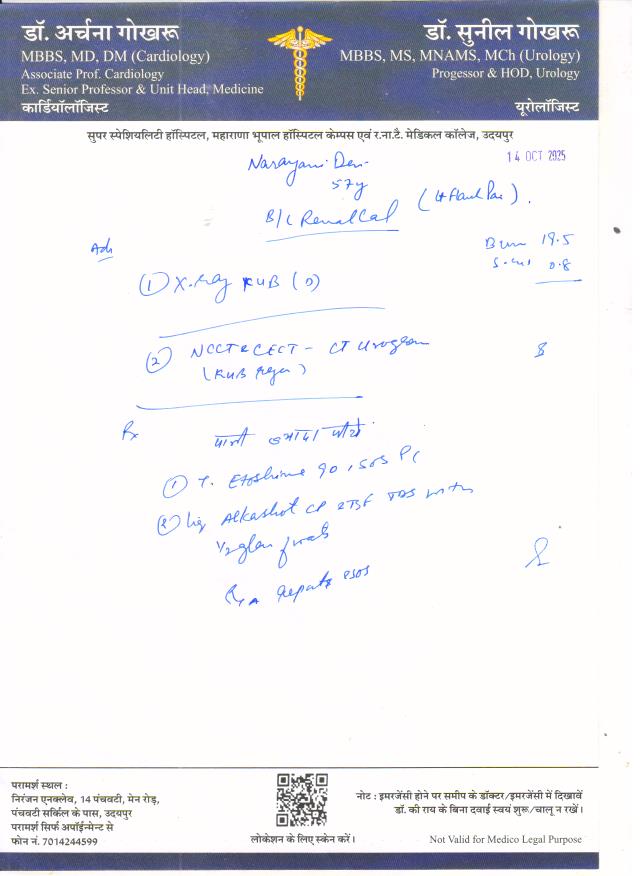 डॉ. अर्चना गोखरू
MBBS, MD, DM (Cardiology)
Associate Prof. Cardiology
Ex. Senior Professor & Unit Head, Medicine
कार्डियॉलॉजिस्ट
डॉ. सुनील गोखरू
MBBS, MS, MNAMS, MCh (Urology)
Progessor & HOD, Urology
यूरोलॉजिस्ट
सुपर स्पेशियलिटी हॉस्पिटल, महाराणा भूपाल हॉस्पिटल केम्पस एवं र.ना.टै. मेडिकल कॉलेज, उदयपुर
14 OCT 2025
Narayani Devi
57y
B/L Renal Cal
Adv
19.5
0.8
(1) X-Ray KUB (D)
(2) NCCT & CECT - CT Urogram
(KUB region)
Rx
पानी ज्यादा पीये
(1) T. Etoshine 90, SOS PC
(2) liq Alkashot CP 2TSF TDS with
1/2 glass of water
परामर्श स्थल :
निरंजन एनक्लेव, 14 पंचवटी, मेन रोड़,
पंचवटी सर्किल के पास, उदयपुर
परामर्श सिर्फ अपॉईन्मेन्ट से
फोन नं. 7014244599
लोकेशन के लिए स्केन करें।
नोट : इमरजेंसी होने पर समीप के डॉक्टर/इमरजेंसी में दिखावें
डॉ. की राय के बिना दवाई स्वयं शुरू/चालू न रखें।
Not Valid for Medico Legal Purpose